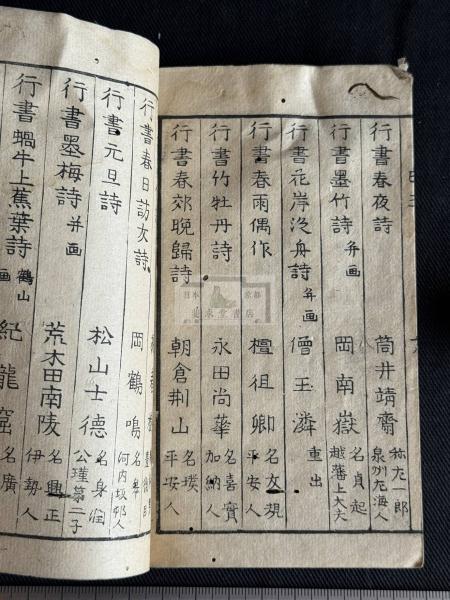 行書春夜詩 筒井靖齋 称左一郎 泉州左海人
行書墨竹詩 并画 岡南嶽 名貞起 越藩上大夫
行書花岸泛舟詩 并画 僧玉潾 重出
行書春雨偶作 檀徂卿 名文規 平安人
行書竹牡丹詩 永田尚華 名喜實 加納人
行書春郊晩歸詩 朝倉荆山 名璞 平安人
行書春日訪友詩 岡鶴鳴 名
行書元旦詩 松山士德 名身 公瑾第二子
行書墨梅詩 并画 荒木田南陵 名興正 伊勢人
行書蝸牛上蕉葉詩 鶴山 画 紀龍窟 名廣
日本 京都
書店